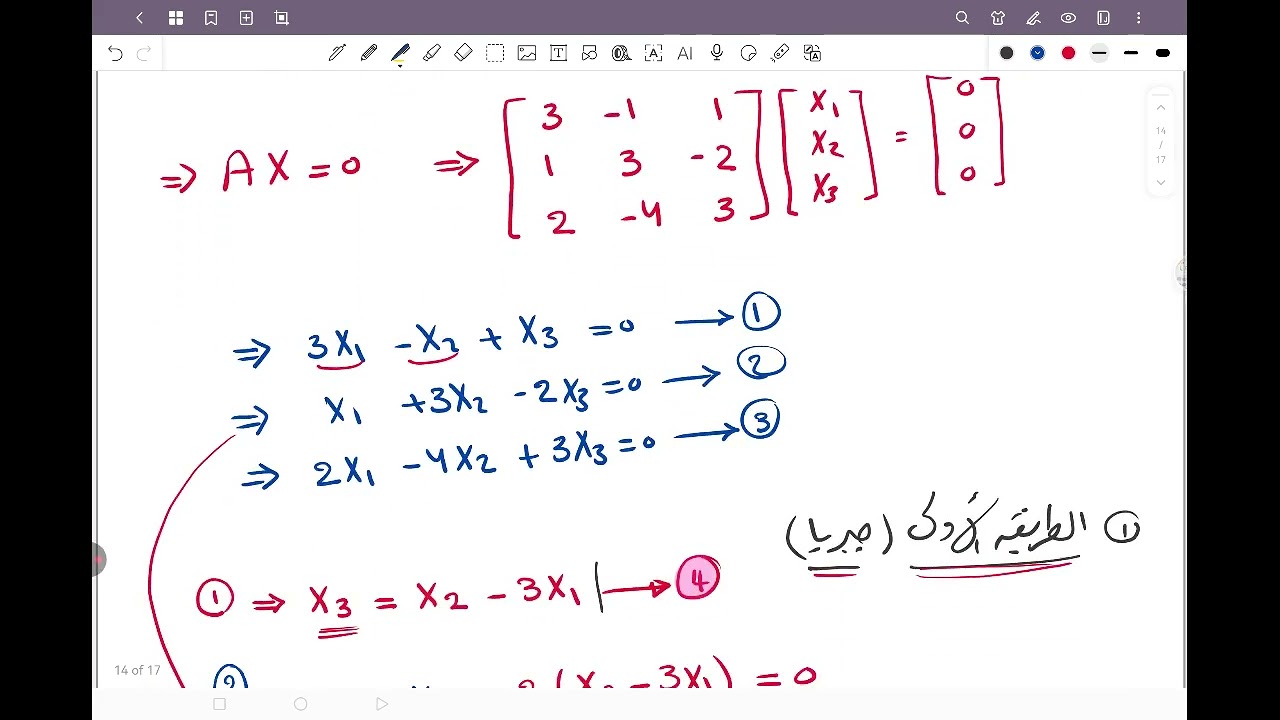 AI
⇒ AX = 0 ⇒ [3 -1 1; 1 3 -2; 2 -4 3] [X1; X2; X3] = [0; 0; 0]
14
/
17
⇒ 3X1 - X2 + X3 = 0 → ①
⇒ X1 + 3X2 - 2X3 = 0 → ②
⇒ 2X1 - 4X2 + 3X3 = 0 → ③
① الطريقة الأولى (جبريا)
① ⇒ X3 = X2 - 3X1 | → ④
14 of 17
② (X2 - 3X1) = 0